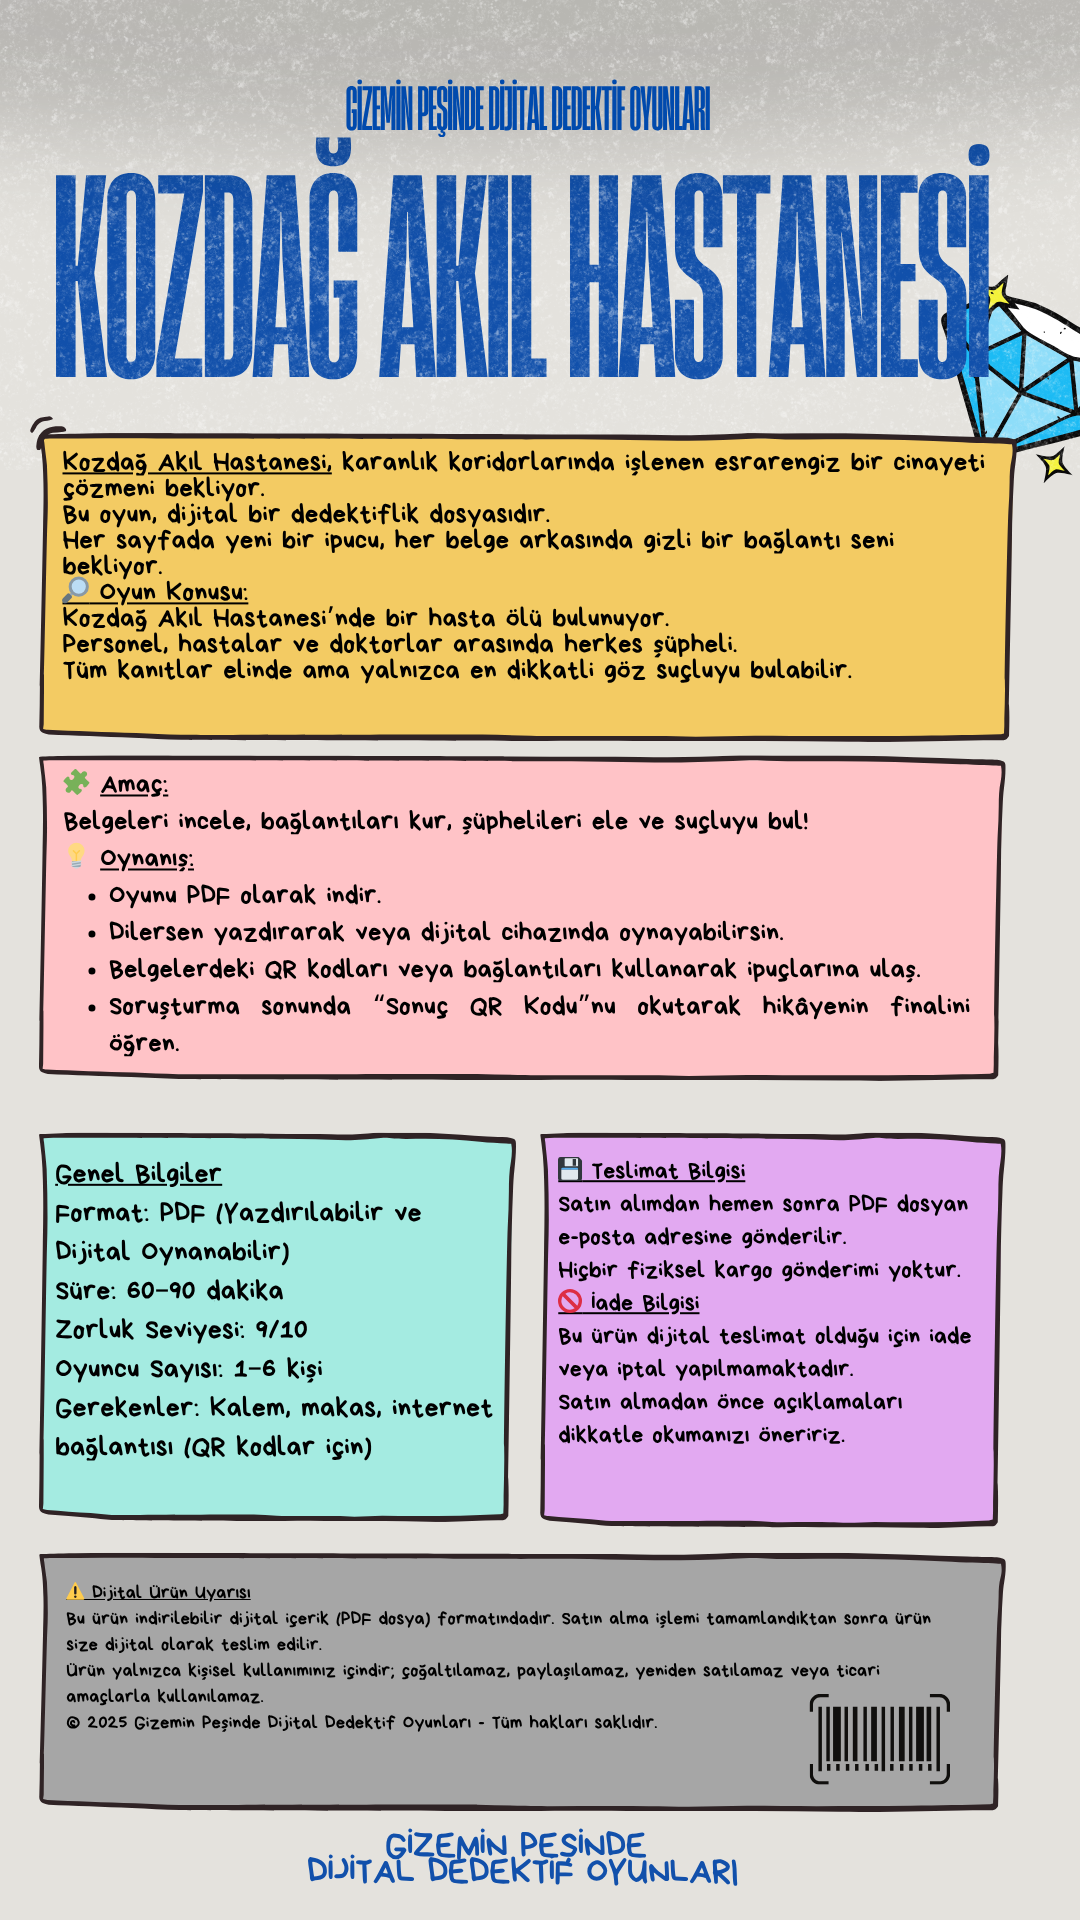 GİZEMİN PEŞİNDE DİJİTAL DEDEKTİF OYUNLARI
KOZDAĞ AKIL HASTANESİ
Kozdağ Akıl Hastanesi, karanlık koridorlarında işlenen esrarengiz bir cinayeti
çözmeni bekliyor.
Bu oyun, dijital bir dedektiflik dosyasıdır.
Her sayfada yeni bir ipucu, her belge arkasında gizli bir bağlantı seni
bekliyor.
🔎 Oyun Konusu:
Kozdağ Akıl Hastanesi’nde bir hasta ölü bulunuyor.
Personel, hastalar ve doktorlar arasında herkes şüpheli.
Tüm kanıtlar elinde ama yalnızca en dikkatli göz suçluyu bulabilir.
🧩 Amaç:
Belgeleri incele, bağlantıları kur, şüphelileri ele ve suçluyu bul!
💡 Oynanış:
• Oyunu PDF olarak indir.
• Dilersen yazdırarak veya dijital cihazında oynayabilirsin.
• Belgelerdeki QR kodları veya bağlantıları kullanarak ipuçlarına ulaş.
• Soruşturma sonunda “Sonuç QR Kodu”nu okutarak hikâyenin finalini
öğren.
Genel Bilgiler
Format: PDF (Yazdırılabilir ve
Dijital Oynanabilir)
Süre: 60–90 dakika
Zorluk Seviyesi: 9/10
Oyuncu Sayısı: 1–6 kişi
Gerekenler: Kalem, makas, internet
bağlantısı (QR kodlar için)
💾 Teslimat Bilgisi
Satın alımdan hemen sonra PDF dosyan
e-posta adresine gönderilir.
Hiçbir fiziksel kargo gönderimi yoktur.
🚫 İade Bilgisi
Bu ürün dijital teslimat olduğu için iade
veya iptal yapılmamaktadır.
Satın almadan önce açıklamaları
dikkatle okumanızı öneririz.
⚠️ Dijital Ürün Uyarısı
Bu ürün indirilebilir dijital içerik (PDF dosya) formatındadır. Satın alma işlemi tamamlandıktan sonra ürün
size dijital olarak teslim edilir.
Ürün yalnızca kişisel kullanımınız içindir; çoğaltılamaz, paylaşılamaz, yeniden satılamaz veya ticari
amaçlarla kullanılamaz.
© 2025 Gizemin Peşinde Dijital Dedektif Oyunları - Tüm hakları saklıdır.
GİZEMİN PEŞİNDE
DİJİTAL DEDEKTİF OYUNLARI